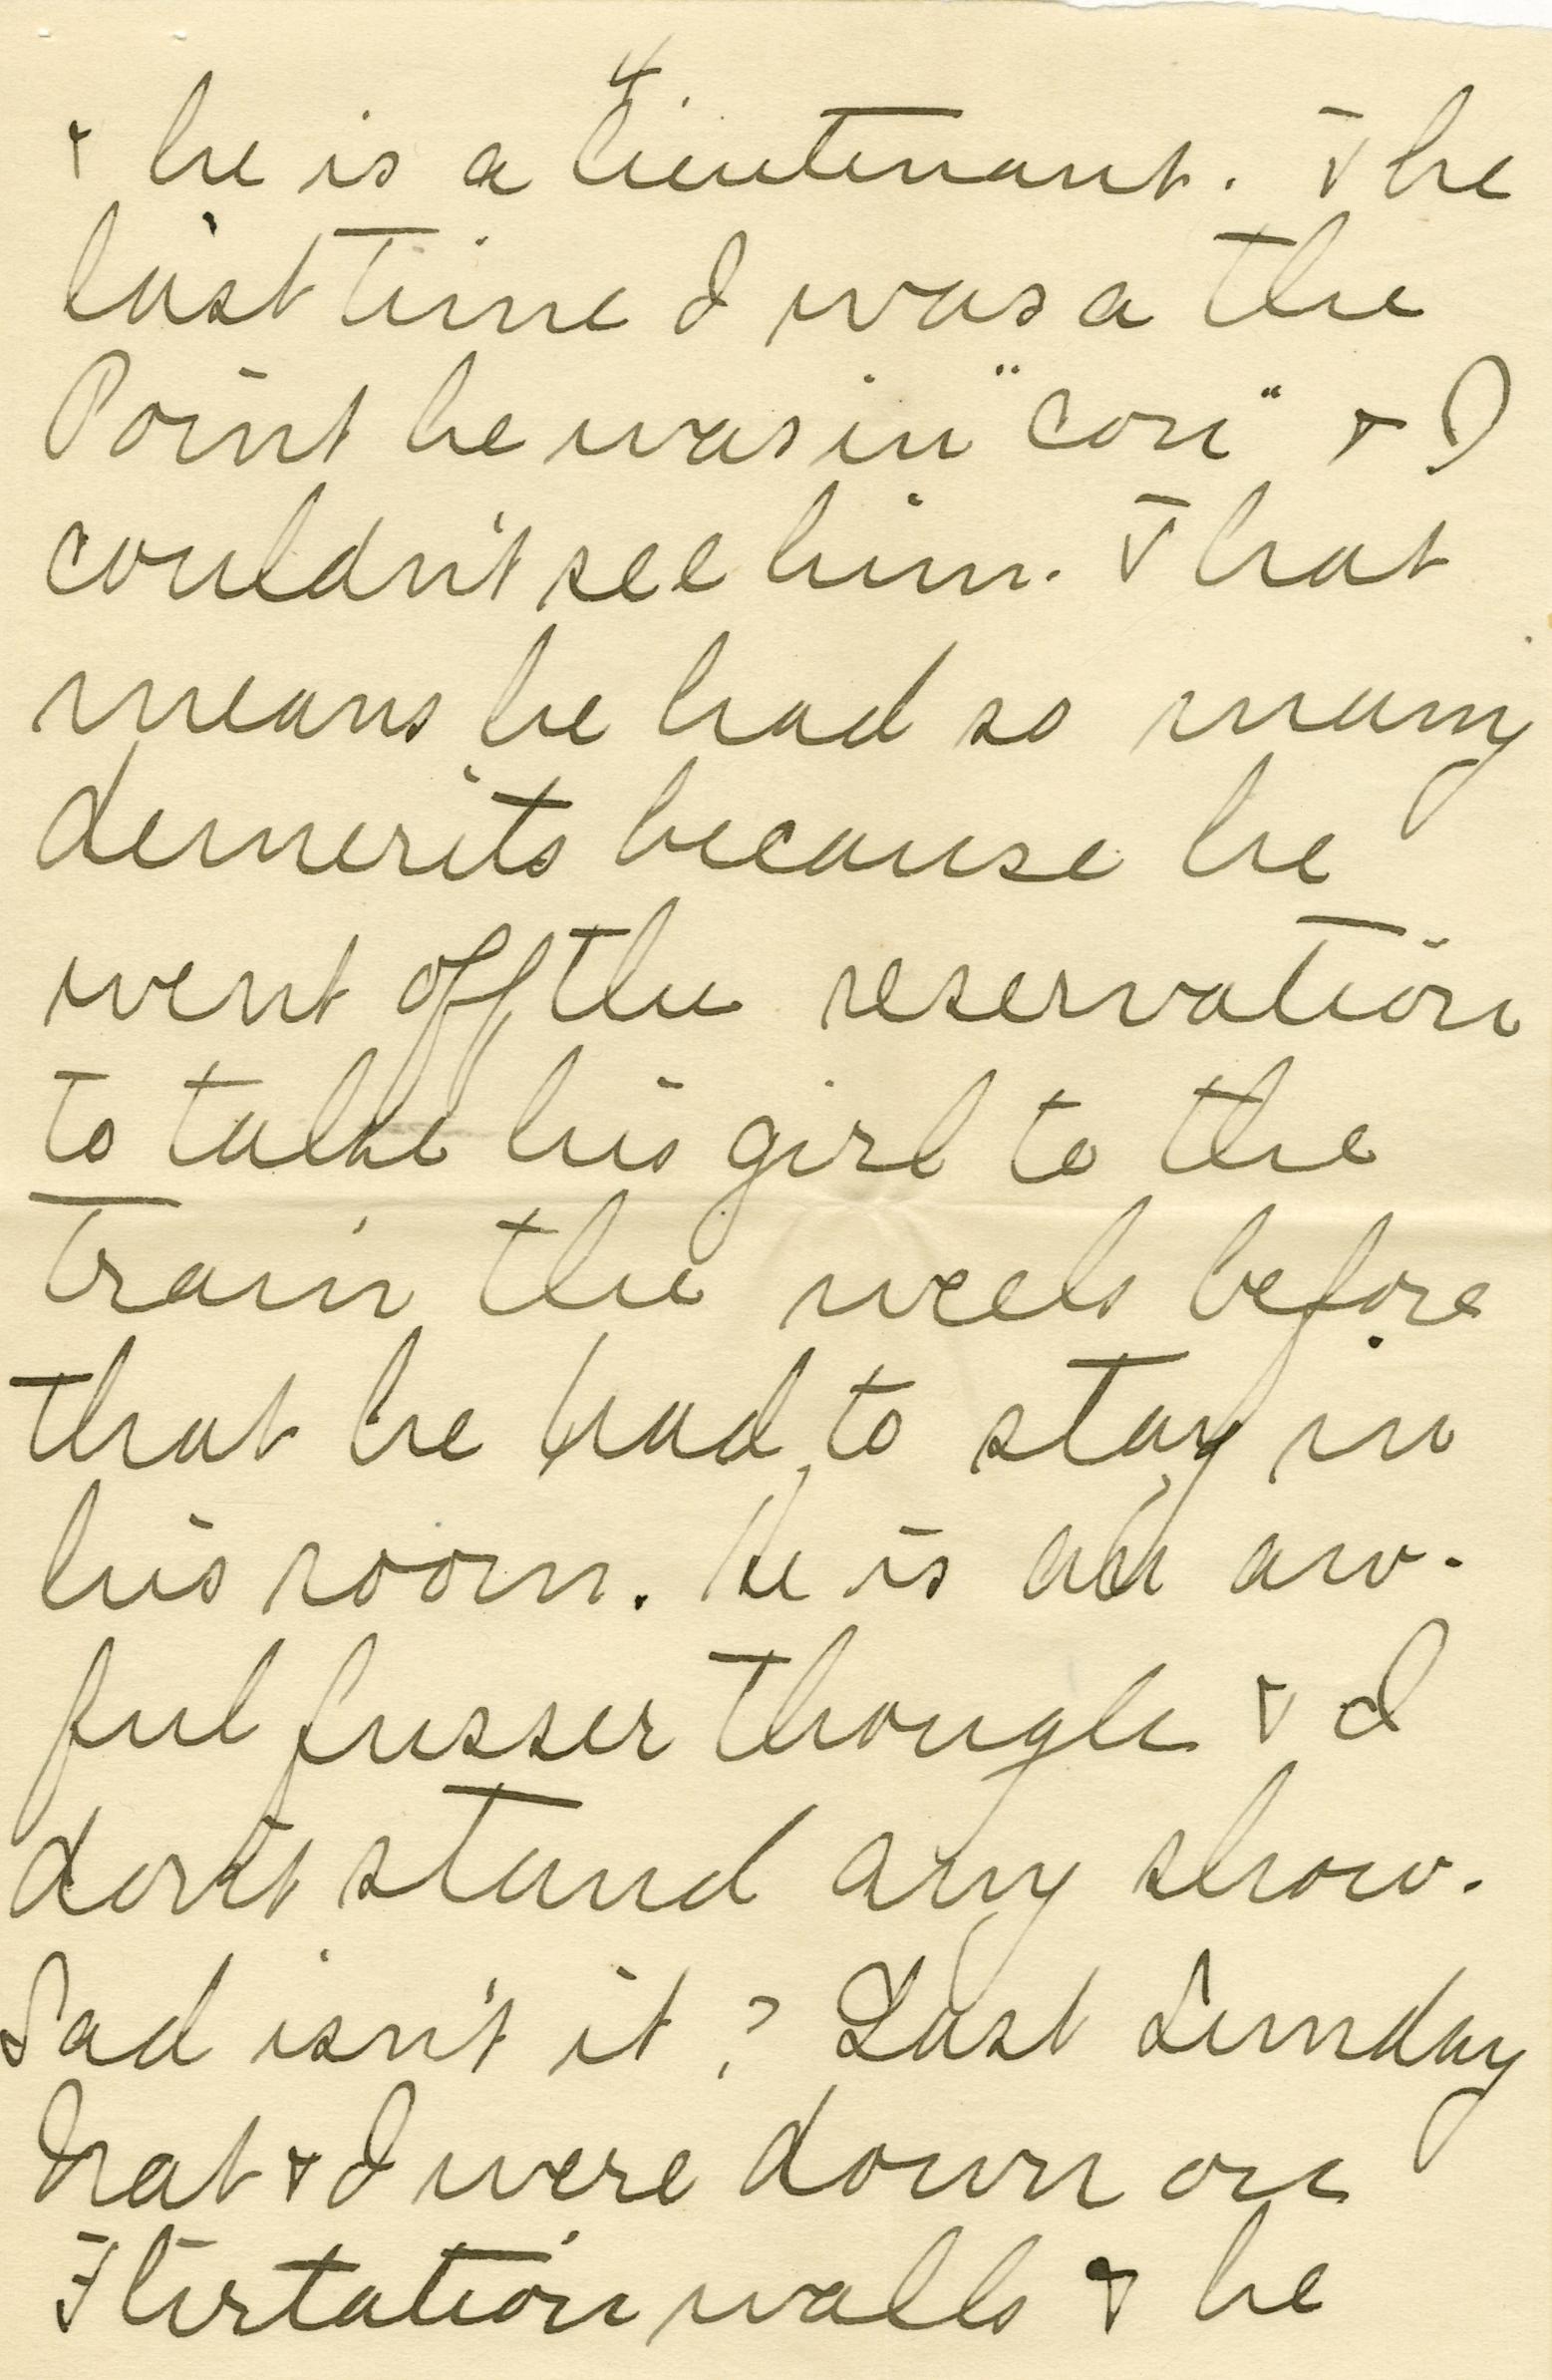 4
+ he is a lieutenant. The
last time I was a the
Point he was in "con" + I
couldn't see him. That
means he had so many
demerits because he
went off the reservation
to take his girl to the
train the week before
that he had to stay in
his room. He is an aw-
ful fusser though + I
don't stand any show.
Sad isn't it? Last Sunday
Nat + I were down on
Flirtation walk + he